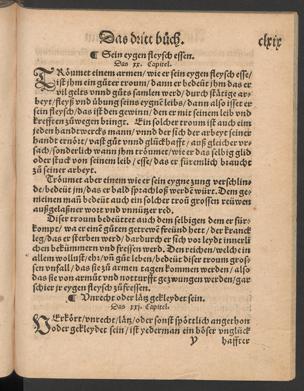 Das dritt büch. clxix
¶ Sein eygen fleysch essen.
Das xx. Capitel.
TRöumet einem armen / wie er sein eygen fleysch esse /
ist jhm ein gůter troum / dann er bedeüt / jhm das er
vil gelts vnnd gůts samlen werd / durch stätige ar-
beyt / fleyß vnd übung seins eygnē leibs / dann also isset er
sein fleysch / das ist den gewinn / den er mit seinem leib vnd
krefften zůwegen bringt. Ein solcher troum ist auch eim
jeden handtwercks mann / vnnd der sich der arbeyt seiner
handt ernört / vast gůt vnnd glückhafft / auß gleicher vr-
sach / sonderlich wann jhm tröumet / wie er das selbig glid
oder stuck von seinem leib / esse / das er füremlich braucht
zů seiner arbeyt.
Tröumet aber einem wie er sein eygne zung verschlin-
de / bedeüt jm / das er bald sprachloß werde würt. Dem ge-
meinen man̄ bedeüt auch ein solcher troū grossen reüwen
außgelaßner wort vnd vnnützer red.
Diser troum bedeüttet auch dem selbigen dem er für-
kompt / wa er eine gůten getrewē freünd hett / der kranck
leg / das er sterben werd / dardurch er sich vor leydt innerli-
chen bekümmern vnd fressen werd. Den reichen / welche in
allem wollust / ehr / vn̄ gůt leben / bedeüt diser troum gros-
sen vnfall / das sie zů armen tagen kommen werden / also
das sie von armůt vnd notturfft gezwungen werden / gar
schier jr eygen fleysch zůfressen.
¶ Vnrecht oder lätz gekleydet sein.
Das xxj. Capitel.
VErkört / vnrecht / lätz / oder sonst spöttlich angethon
oder gekleydet sein / ist yederman ein böser vnglück
y haffter